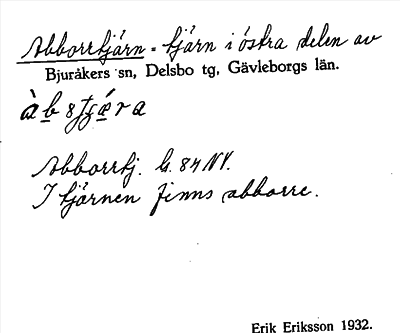 Abborrtjärn = tjärn i östra delen av
Bjuråkers sn, Delsbo tg, Gävleborgs län.
Abborrtj. G. 84 NV.
I tjärnen finns abborre.
Erik Eriksson 1932.